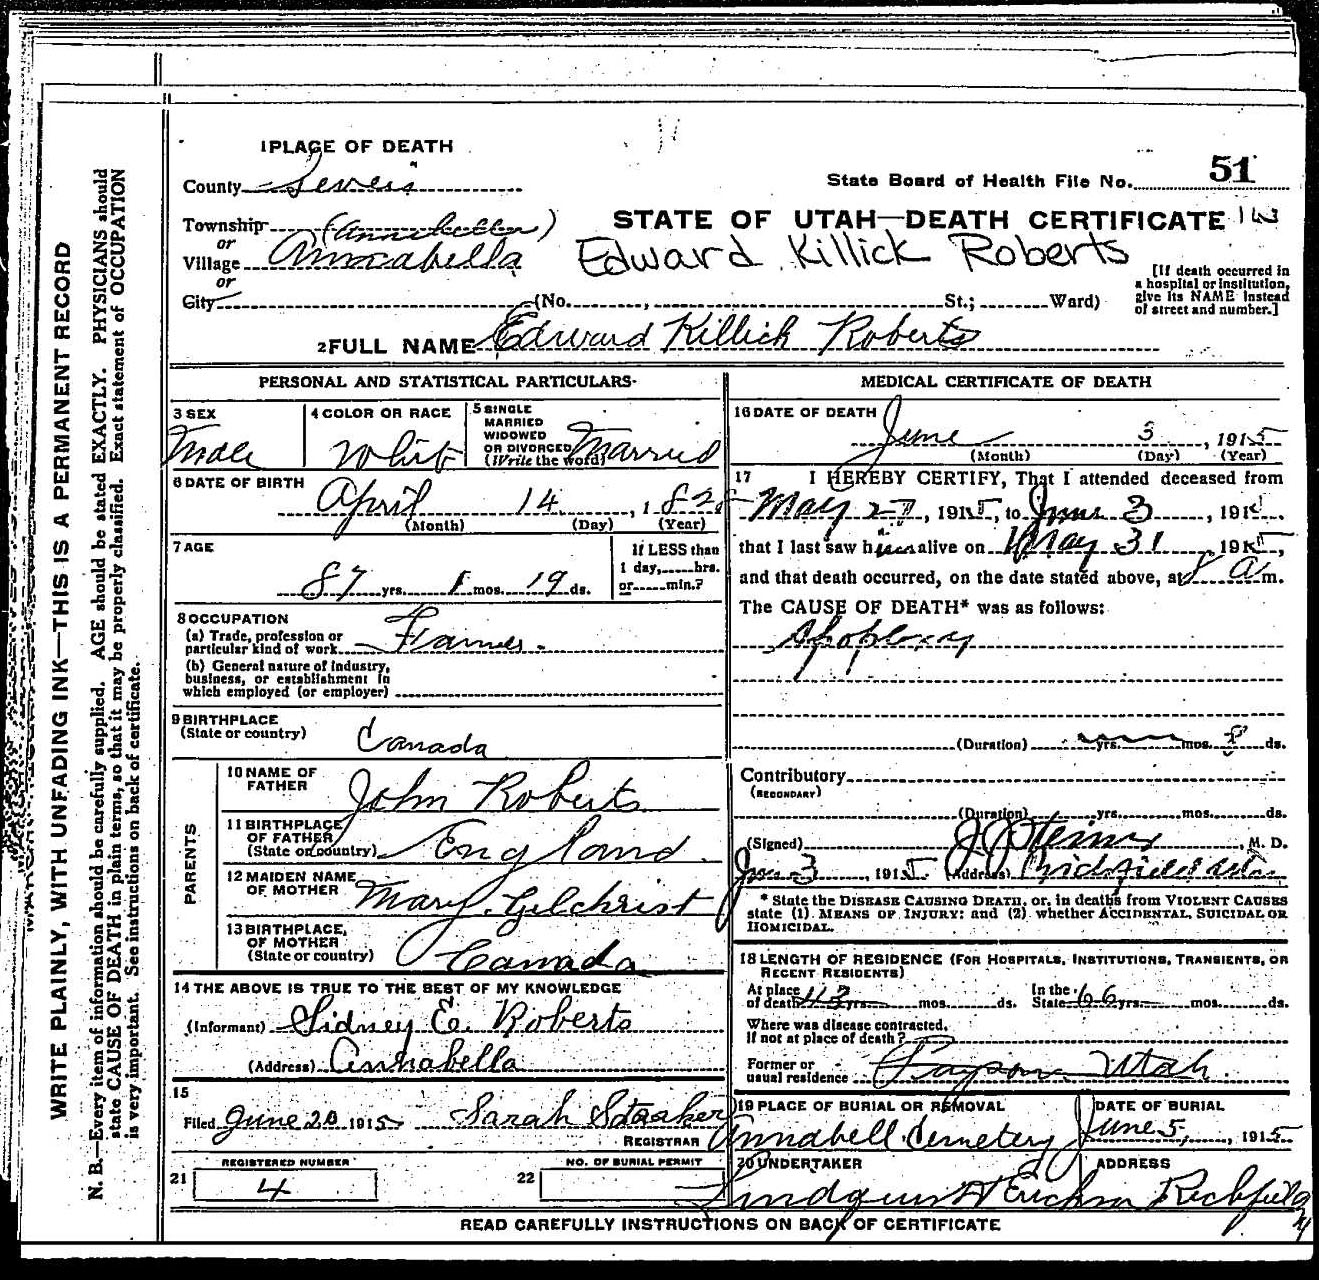 1 PLACE OF DEATH
County Sevier
State Board of Health File No. 51
Township (Annabella)
or
Village Annabella
or
City (No. , St.; Ward)
STATE OF UTAH—DEATH CERTIFICATE
Edward Killick Roberts
[If death occurred in
a hospital or institution,
give its NAME instead
of street and number.]
2 FULL NAME Edward Killick Roberts
PERSONAL AND STATISTICAL PARTICULARS
3 SEX
Male
4 COLOR OR RACE
White
5 SINGLE
MARRIED
WIDOWED
OR DIVORCED
(Write the word)
Married
6 DATE OF BIRTH
April 14, 1828
(Month) (Day) (Year)
7 AGE
87 yrs. 1 mos. 19 ds.
If LESS than
1 day, hrs.
or min.?
8 OCCUPATION
(a) Trade, profession or
particular kind of work Farmer
(b) General nature of industry,
business, or establishment in
which employed (or employer)
9 BIRTHPLACE
(State or country) Canada
PARENTS
10 NAME OF
FATHER John Roberts
11 BIRTHPLACE
OF FATHER
(State or country) England
12 MAIDEN NAME
OF MOTHER Mary Gilchrist
13 BIRTHPLACE
OF MOTHER
(State or country) Canada
14 THE ABOVE IS TRUE TO THE BEST OF MY KNOWLEDGE
(Informant) Sidney E. Roberts
(Address) Annabella
15
Filed June 20 1915 Sarah Staaker
REGISTRAR
21 REGISTERED NUMBER
4
22 NO. OF BURIAL PERMIT
MEDICAL CERTIFICATE OF DEATH
16 DATE OF DEATH
June 3, 1915
(Month) (Day) (Year)
17 I HEREBY CERTIFY, That I attended deceased from
May 27, 1915, to June 3, 191
that I last saw him alive on May 31, 1915,
and that death occurred, on the date stated above, at 8 A m.
The CAUSE OF DEATH* was as follows:
Apoplexy
(Duration) yrs. mos. 8 ds.
Contributory
(SECONDARY)
(Duration) yrs. mos. ds.
(Signed) J. J. Steiner, M. D.
June 3, 1915 (Address) Richfield Utah
* State the DISEASE CAUSING DEATH, or, in deaths from VIOLENT CAUSES
state (1) MEANS OF INJURY; and (2) whether ACCIDENTAL, SUICIDAL OR
HOMICIDAL.
18 LENGTH OF RESIDENCE (FOR HOSPITALS, INSTITUTIONS, TRANSIENTS, OR
RECENT RESIDENTS)
At place
of death 43 yrs. mos. ds. In the
State 66 yrs. mos. ds.
Where was disease contracted,
if not at place of death?
Former or
usual residence Payson Utah
19 PLACE OF BURIAL OR REMOVAL
Annabell Cemetery
DATE OF BURIAL
June 5, 1915
20 UNDERTAKER
ADDRESS
Richfield
READ CAREFULLY INSTRUCTIONS ON BACK OF CERTIFICATE
WRITE PLAINLY, WITH UNFADING INK—THIS IS A PERMANENT RECORD
N. B.—Every item of information should be carefully supplied. AGE should be stated EXACTLY. PHYSICIANS should
state CAUSE OF DEATH in plain terms, so that it may be properly classified. Exact statement of OCCUPATION
is very important. See instructions on back of certificate.